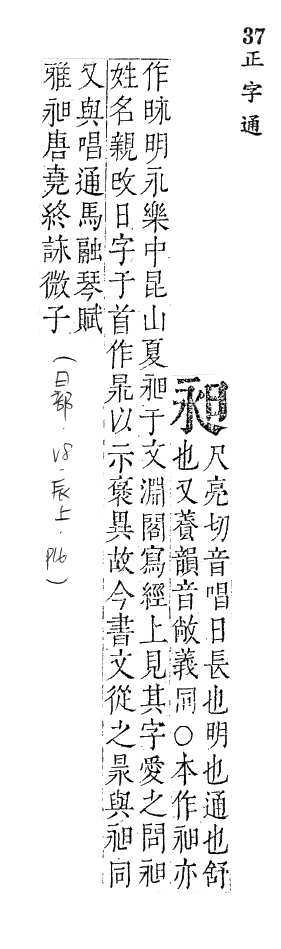 37
正字通
昶
尺亮切音唱日長也明也通也舒
也又養韻音敞義同○本作昶亦
作昹明永樂中昆山夏昶于文淵閣寫經上見其字愛之問昶
姓名親改日字于首作㫤以示褒異故今書文從之㫤與昶同
又與唱通馬融琴賦
雅昶唐堯終詠微子
(日部．V8．辰上．P16)